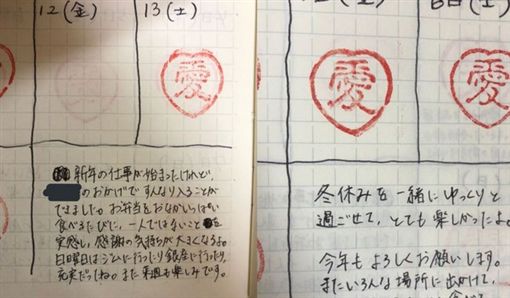 12(金)
13(土)
愛
新年の仕事が始まったけれど、
のおかげですんなり入ることが
できました。お弁当をおなかいっぱい
食べるたびに、一人ではないこと
実感し、感謝の気持が大きくなるよ。
日曜日はジムに行ったり銀座に行ったり、
充実だったね。また来週も楽しみです。
(金)
6日(土)
愛
愛
冬休みを一緒にゆっくりと
過ごせて、とても楽しかったよ。
今年もよろしくお願いします。
またいろんな場所に出かけて、